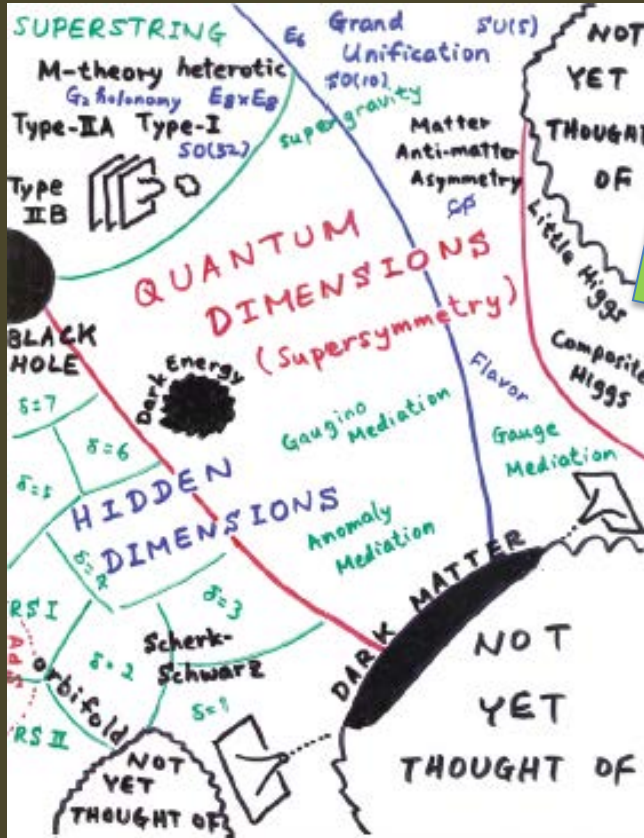 SUPERSTRING
M-theory heterotic
G₂ holonomy E8×E8
Type-IIA Type-I
SO(32)
Type
IIB
E6 Grand
Unification
SU(5)
SO(10)
supergravity
Matter
Anti-matter
Asymmetry
NOT
YET
THOUGHT
OF
Little Higgs
Composite
Higgs
QUANTUM
DIMENSIONS
(Supersymmetry)
BLACK
HOLE
Dark Energy
Flavor
Gaugino
Mediation
Gauge
Mediation
Anomaly
Mediation
δ=7
δ=6
δ=5
HIDDEN
DIMENSIONS
δ=3
RS I
AdS
orbifold
δ=2
Scherk-
Schwarz
RS II
DARK MATTER
NOT
YET
THOUGHT OF
NOT
YET
THOUGHT OF